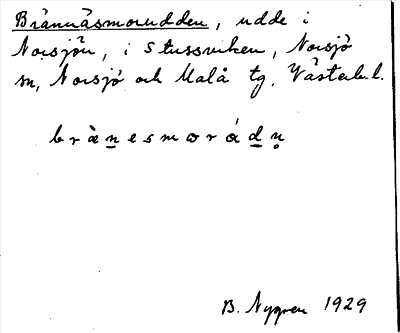 Brännäsmorudden, udde i
Norsjön, i Stussviken, Norsjö
sn, Norsjö och Malå tg, Västerb. l.
bràn̲esmorád̲n̥
B. Nygren 1929